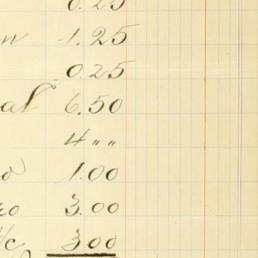 0.25
n 1.25
0.25
al 6.50
4 " "
o 1.00
ro 3.00
/c 3.00